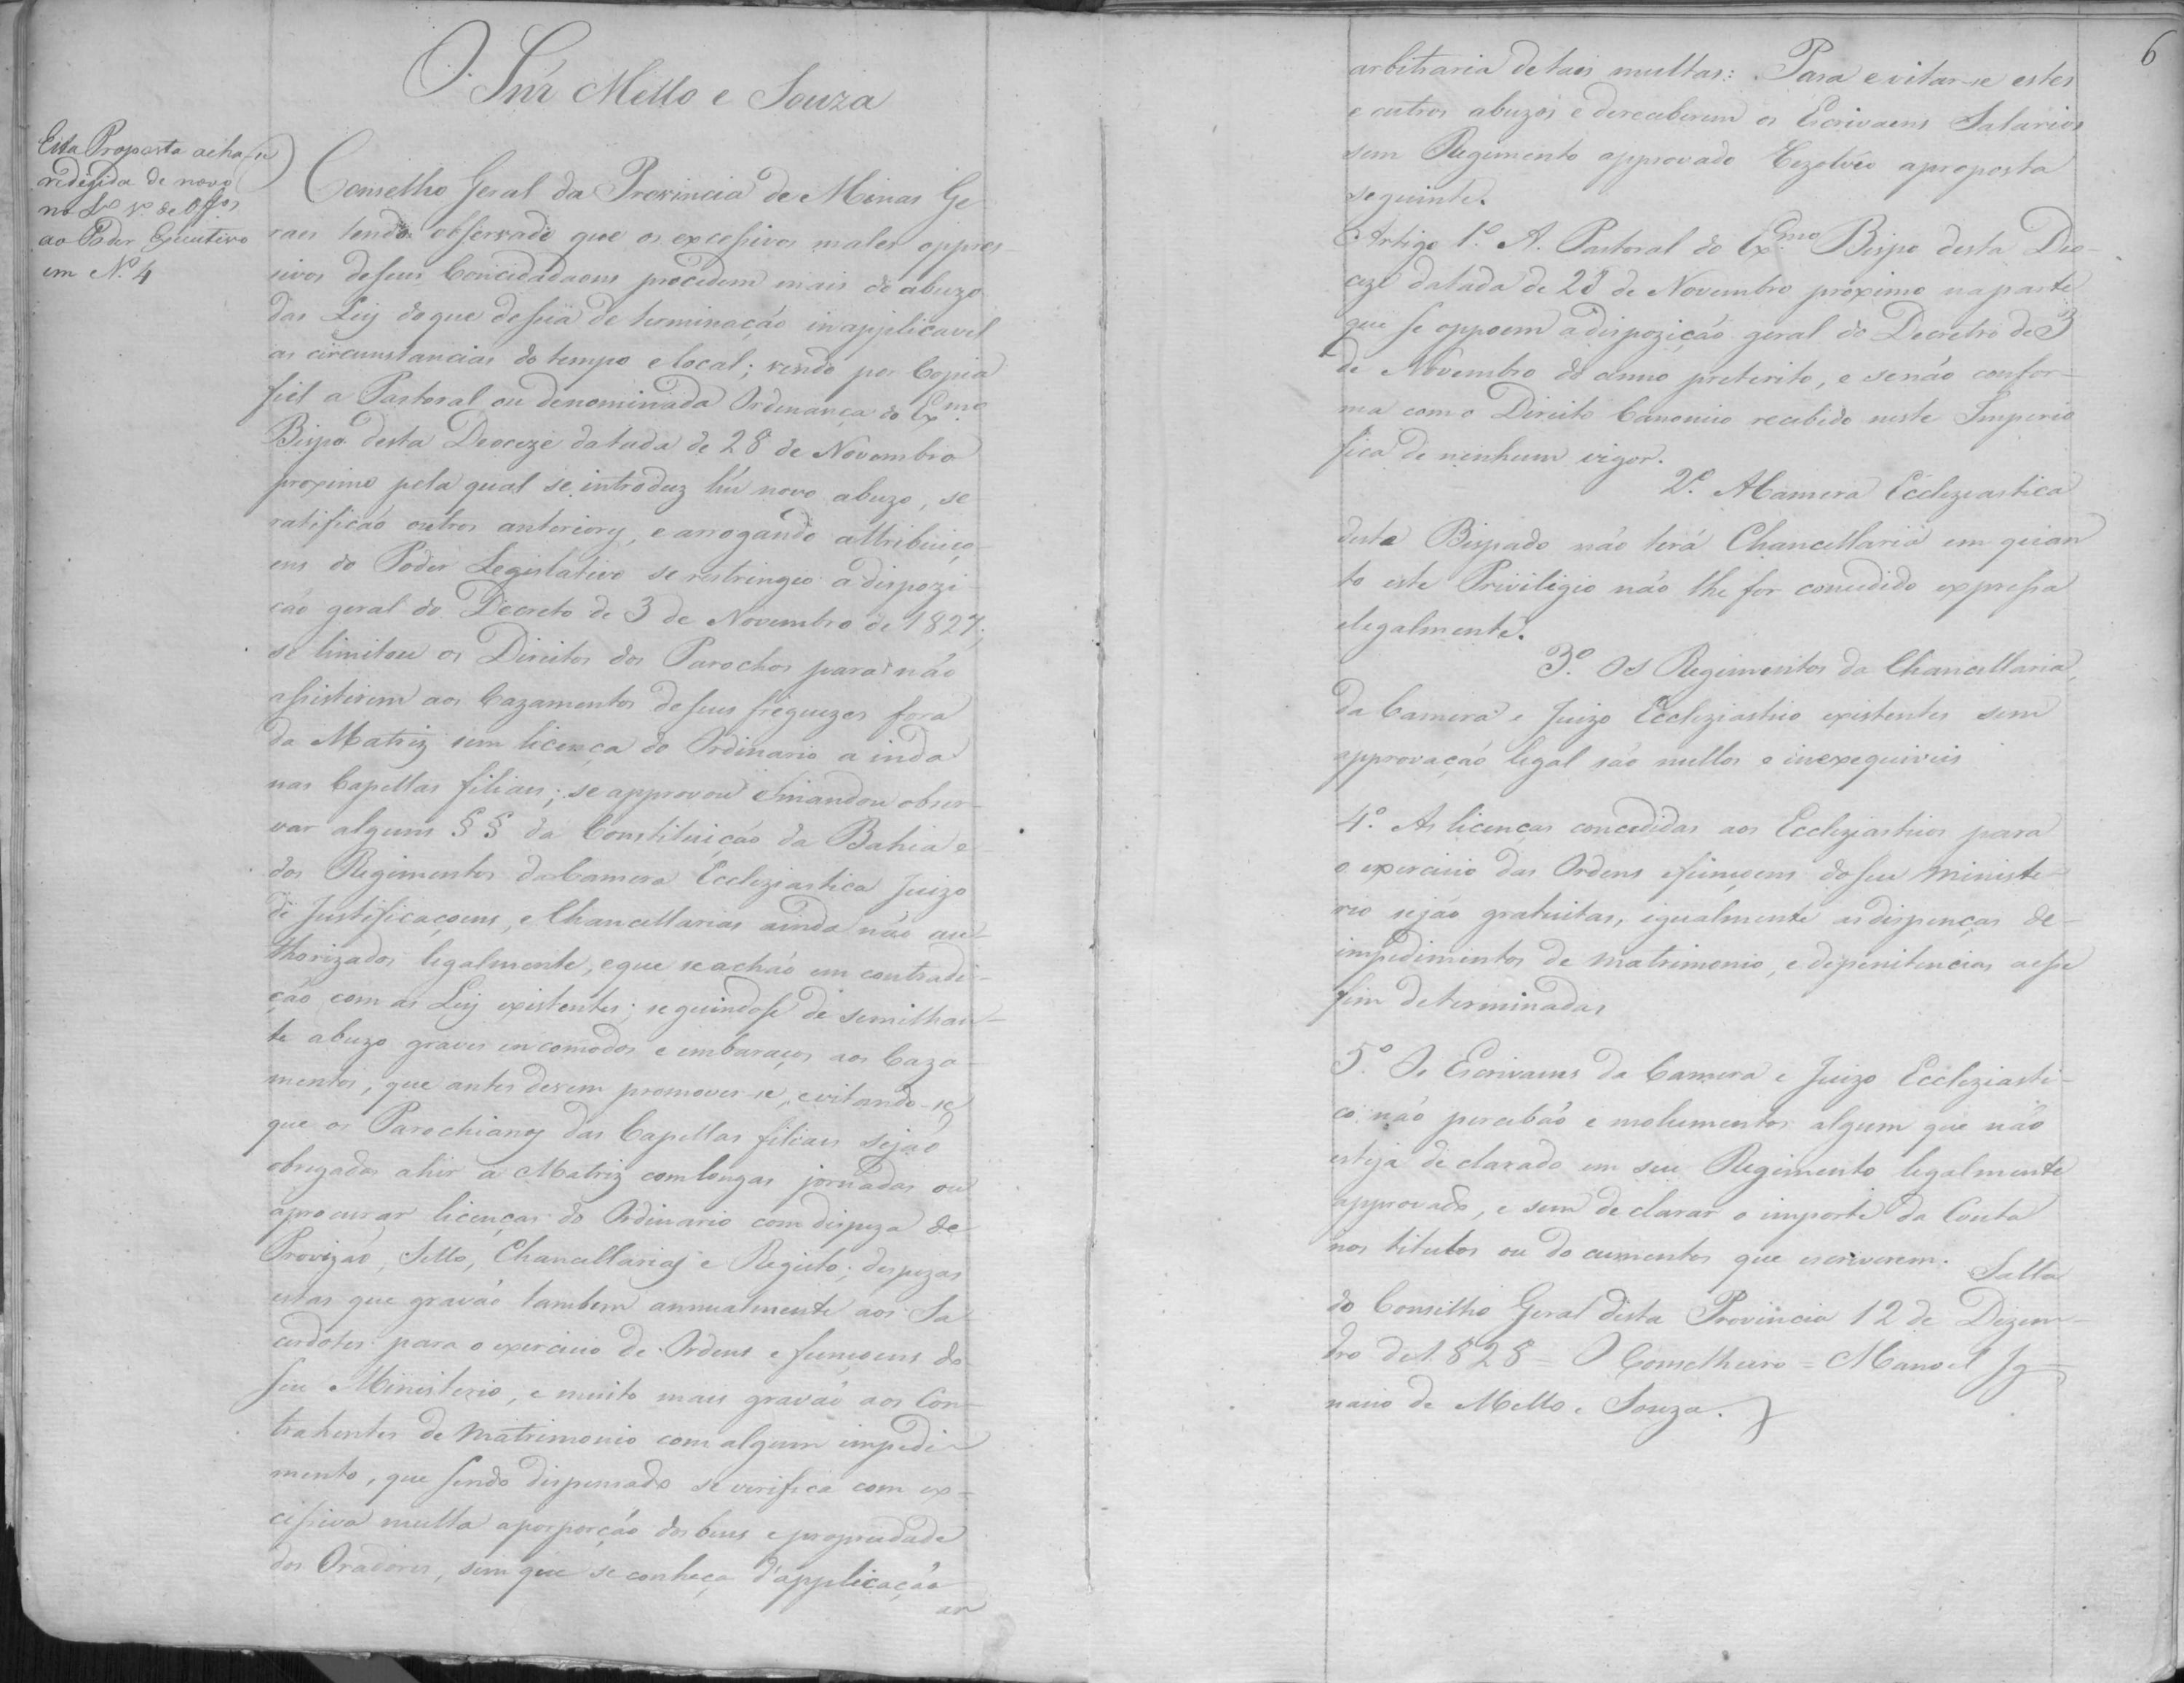 O Snr̃ Mello e Souza
Esta Proposta acha se
redegida de novo
no L.º 1.º de Off.os
ao Poder Executivo
em N.º 4
O Conselho Geral da Provincia de Minas Ge
raes tendo observado que os excessivos males oppres-
sivos de seus Concidadaons procedem mais do abuzo
das Leij do que de sua determinação inapplicavel
as circunstancias do tempo e local; vendo por Copia
fiel a Pastoral ou denominada Ordenança do Ex.mo
Bispo desta Deoceze datada de 28 de Novembro
proximo pela qual se introduz hũ novo abuzo, se
ratificão outros anteriorij, e arrogando attribuiço-
ens do Poder Legislativo se restringio a dispozi-
ção geral do Decreto de 3 de Novembro de 1827;
se limitou os Direitos dos Parochos para não
assistirem aos Cazamentos de seus freguezes fora
da Matriz sem licença do Ordinario ainda
nas Capellas filiaes; se approvou e mandou obser-
var alguns §§ da Constituição da Bahia e
dos Regimentos da Camera Ecclêziastica Juizo
de Justificaçoens, e Chancellarias ainda não au-
thorizados legalmente, e que se achão em contradi-
ção com as Leij existentes; seguindose de semilhan-
te abuzo graves encomodos e embaraços aos Caza-
mentos, que antes devem promover-se, evitando-se
que os Parochianos das Capellas filiaes sejão
obregados ahir a Matriz com longas jornadas ou
aprocurar licenças do Ordinario com dispeza de
Provizão, Sello, Chancellarias e Registo; despezas
estas que gravão tambem annualmente aos Sa
cerdotes para o exercicio de Ordens e funçoens do
seu Ministerio, e muito mais gravão aos Con-
trahentes de Matrimonio com algum impedi-
mento, que sendo dispensado se verifica com ex-
cessiva multa aporporção dos bens e propriedade
dos Oradores, sem que se conheça d'applicação
ar
6
arbitraria de taes multas: Para evitar-se estes
e outros abuzos e de receberem os Escrivaens Salarios
sem Regimento approvado Rezolveo aproposta
seguinte.
Artigo 1.º A Pastoral do Ex.mo Bispo desta Deo-
ceze datada de 28 de Novembro proximo na parte
que se oppoem adispozição geral do Decretro de 3
de Novembro do anno preterito, e senão confor-
ma com o Direito Canonico recebido neste Imperio
fica de nenhum vigor.
2.º A Camera Eccleziastica
deste Bispado não terá Chancellaria em quan
to este Privilegio não lhe for concedido expressa
elegalmente.
3.º Os Regimentos da Chancellaria,
da Camera e Juizo Eccleziastico existentes sem
approvação legal são nullos e inexequiveis
4.º As licenças concedidas aos Eccleziasticos para
o exercicio das Ordens e funçoens do seu Ministe-
rio sejão gratuitas, igualmente as dispenças de-
impedimentos de matrimonio, e depenitencias a esse
fim determinadas
5.º Os Escrivaens da Camera e Juizo Ecclesiasti-
co não percebão emolumentos algum que não
esteja declarado em seu Regimento legalmente
approvado, e sem declarar o importe da Conta
nos titulos ou documentos que escriverem. Salla
do Conselho Geral desta Provincia 12 de Dezem-
bro de 1828 = O Conselheiro = Manoel Ig-
nacio de Mello e Souza.